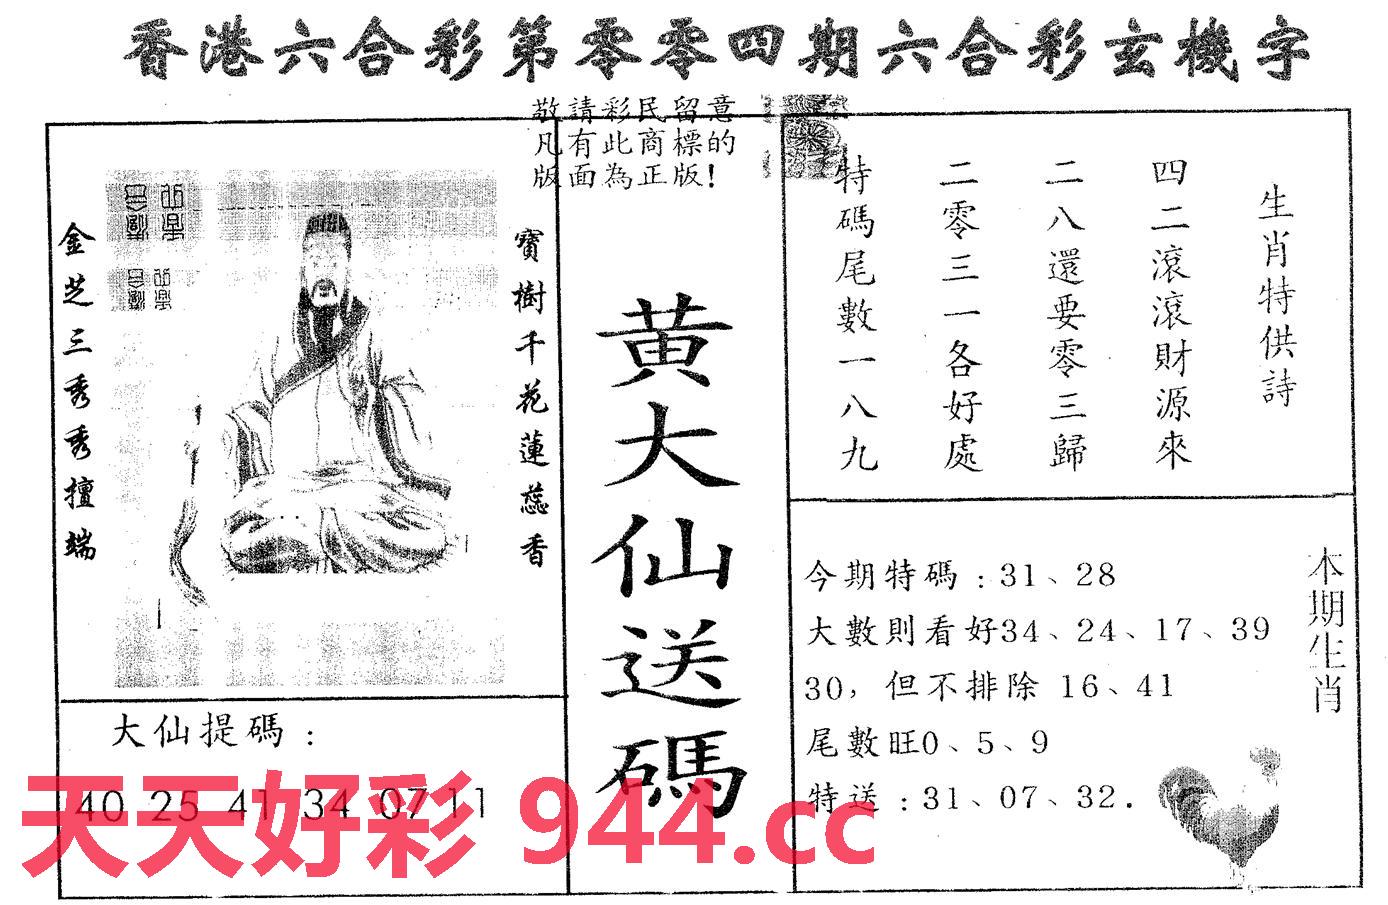 香港六合彩第零零四期六合彩玄機字
敬請彩民留意
凡有此商標的
版面為正版!
生肖特供詩
四二滾滾財源來
二八還要零三歸
二零三一各好處
特碼尾數一八九
黃大仙送碼
寶樹千花蓮蕊香
金芝三秀秀擅端
大仙提碼：
40 25 41 34 07 11
今期特碼：31、28
大數則看好34、24、17、39
30，但不排除 16、41
尾數旺0、5、9
特送：31、07、32.
本期生肖
天天好彩 944.cc